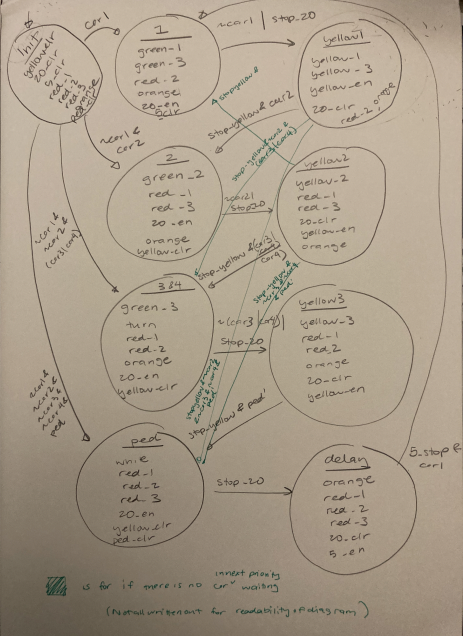 Init
yellow-clr
20-clr
5-clr
red-1
red-2
red-3
orange
ped-clr
car1
1
green-1
green-3
red-2
orange
20-en
5clr
~car1 | stop-20
yellow1
yellow-1
yellow-3
yellow-en
20-clr
red-2, orange
~car1 &
car2
stopyellow &
stop-yellow & car2
stop-yellow & ~car2 &
(car3|car4)
2
green-2
red-1
red-3
20-en
orange
yellow-clr
~car2|
stop20
yellow2
yellow-2
red-1
red-3
20-clr
yellow-en
orange
~car1 &
~car2 &
(car3|car4)
stop-yellow & (car3|
car4)
3&4
green-3
turn
red-1
red-2
orange
20-en
yellow-clr
~(car3|car4)|
stop-20
stop-yellow &
~car3 & ~car4
& ped'
yellow3
yellow-3
red-1
red2
orange
20-clr
yellow-en
~car1 &
~car2 &
~car3 &
~car4 &
ped
stopyellow & ~car2
& ~car3 & ~car4 &
ped'
stop-yellow & ped'
ped
white
red-1
red-2
red-3
20-en
yellow-clr
ped-clr
stop-20
delay
orange
red-1
red-2
red-3
20-clr
5-en
5-stop &
car1
is for if there is no car in next priority waiting
(Not all written out for readability of diagram)